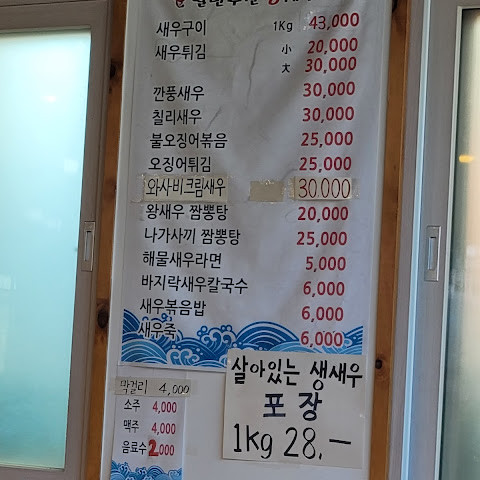 새우구이 1Kg 43,000
새우튀김 小 20,000
大 30,000
깐풍새우 30,000
칠리새우 30,000
불오징어볶음 25,000
오징어튀김 25,000
와사비크림새우 30,000
왕새우 짬뽕탕 20,000
나가사끼 짬뽕탕 25,000
해물새우라면 5,000
바지락새우칼국수 6,000
새우볶음밥 6,000
새우죽 6,000
막걸리 4,000
소주 4,000
맥주 4,000
음료수 2,000
살아있는 생새우
포장
1kg 28.—